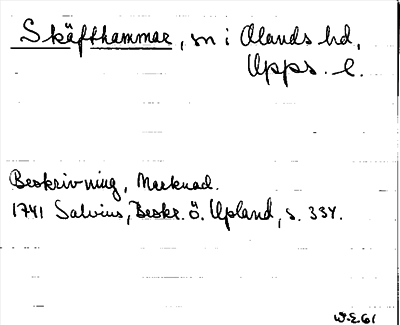 Skäfthammar, sn i Olands hd,
Upps. l.
Beskrivning, Marknad.
1741 Salvius, Beskr. ö. Upland, s. 334.
W.E. 61